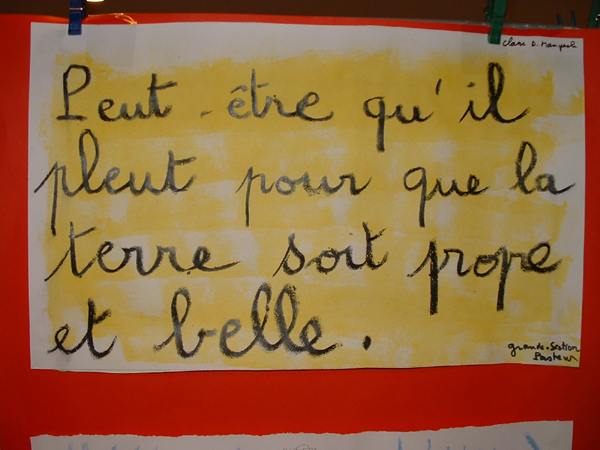 Peut-être qu'il
pleut pour que la
terre soit prope
et belle.
grande-Section
Pasteur